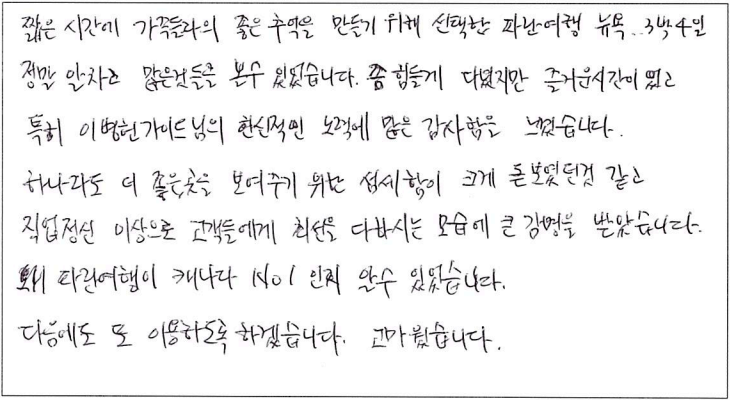 짧은 시간에 가족들과의 좋은 추억을 만들기 위해 선택한 파란여행 뉴욕.. 3박4일
정말 알차고 많은것들을 볼수 있었습니다. 쫌 힘들게 다녔지만 즐거운시간이 였고
특히 이병헌가이드님의 헌신적인 노력에 많은 감사함을 느꼈습니다.
하나라도 더 좋은곳을 보여주기 위한 섬세함이 크게 돋보였던것 같고
직업정신 이상으로 고객들에게 최선을 다하시는 모습에 큰 감명을 받았습니다.
왜 파란여행이 캐나다 No1 인지 알수 있었습니다.
다음에도 또 이용하도록 하겠습니다. 고마웠습니다.